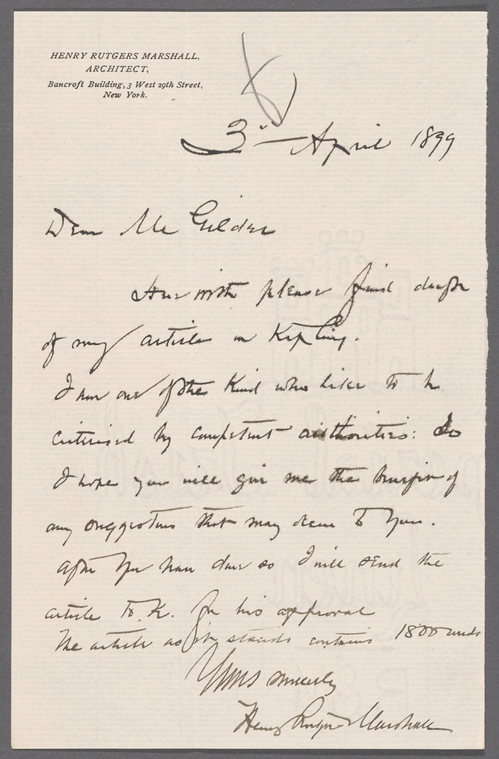 HENRY RUTGERS MARSHALL,
ARCHITECT,
Bancroft Building, 3 West 29th Street,
New York.
3 April 1899
Dear Mr Gilder
Herewith please find draft
of my article on Kipling.
I am one of the kind who like to be
criticised by competent authorities: So
I hope you will give me the benefit of
any suggestions that may occur to you.
After you have done so I will send the
article to K. for his approval
The article as it stands contains 1800 words
Yours sincerely
Henry Rutgers Marshall